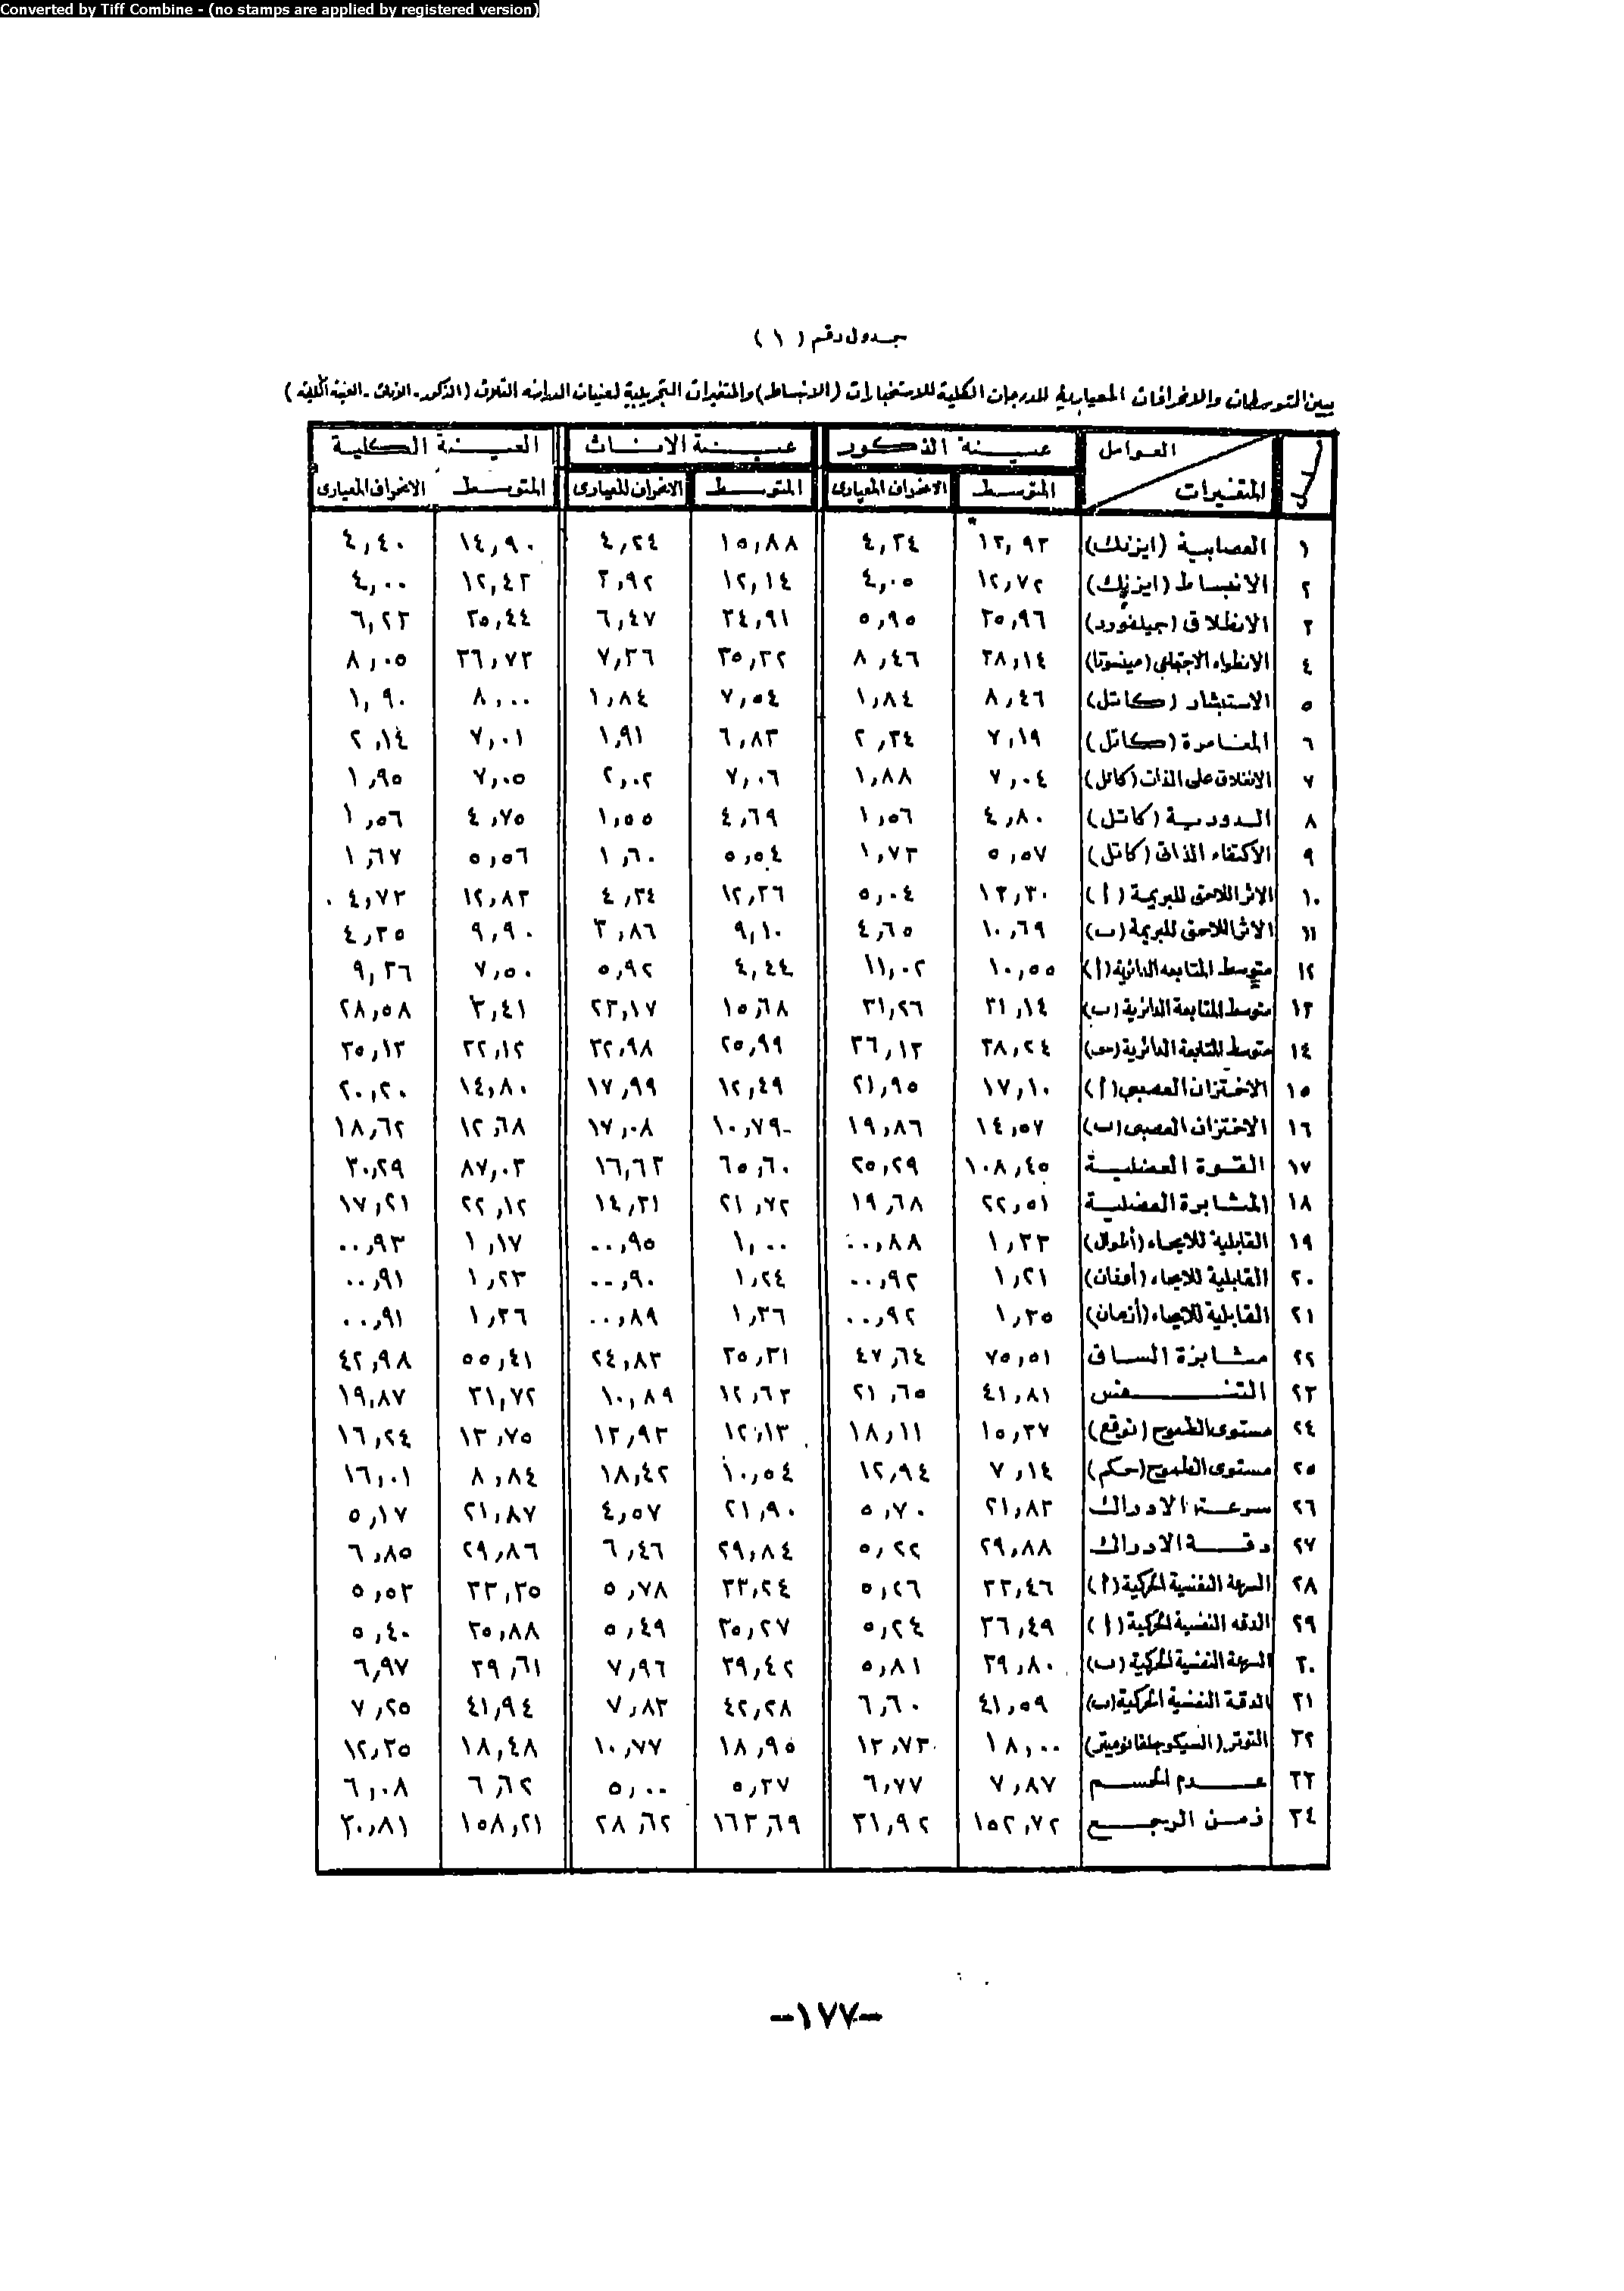 Converted by Tiff Combine - (no stamps are applied by registered version)
جدول رقم ( ١ )
يبين المتوسطات والانحرافات المعيارية للدرجات الكلية للاستخبارات (الانبساط) والمتغيرات التجريبية لعينات الدراسة الثلاث (الذكور - الاناث - العينة الكلية )
العوامل عينة الذكور عينة الاناث العينة الكلية
المتغيرات المتوسط الانحراف المعيارى المتوسط الانحراف المعيارى المتوسط الانحراف المعيارى
١ العصابية (ايزنك) ١٣,٩٣ ٤,٣٤ ١٥,٨٨ ٤,٢٤ ١٤,٩٠ ٤,٤٠
٢ الانبساط (ايزنك) ١٢,٧٢ ٤,٠٥ ١٢,١٤ ٣,٩٢ ١٢,٤٣ ٤,٠٠
٣ الانطلاق (جيلفورد) ٣٥,٩٦ ٥,٩٥ ٣٤,٩١ ٦,٤٧ ٣٥,٤٤ ٦,٢٣
٤ الانطواء الاجتماعى (مينسوتا) ٣٨,١٤ ٨,٤٦ ٣٥,٣٢ ٧,٣٦ ٣٦,٧٣ ٨,٠٥
٥ الاستبشار (كاتل) ٨,٤٦ ١,٨٤ ٧,٥٤ ١,٨٤ ٨,٠٠ ١,٩٠
٦ المغامرة (كاتل) ٧,١٩ ٢,٣٤ ٦,٨٣ ١,٩١ ٧,٠١ ٢,١٤
٧ الانغلاق على الذات (كاتل) ٧,٠٤ ١,٨٨ ٧,٠٦ ٢,٠٢ ٧,٠٥ ١,٩٥
٨ الدورية (كاتل) ٤,٨٠ ١,٥٦ ٤,٦٩ ١,٥٥ ٤,٧٥ ١,٥٦
٩ الاكتفاء الذاتى (كاتل) ٥,٥٧ ١,٧٣ ٥,٥٤ ١,٦٠ ٥,٥٦ ١,٦٧
١٠ الاثر اللاحق للبريمة (أ) ١٣,٣٠ ٥,٠٤ ١٢,٣٦ ٤,٣٤ ١٢,٨٣ ٤,٧٣
١١ الاثر اللاحق للبريمة (ب) ١٠,٦٩ ٤,٦٥ ٩,١٠ ٣,٨٦ ٩,٩٠ ٤,٣٥
١٢ متوسط المتابعة الدائرية (أ) ١٠,٥٥ ١١,٠٢ ٤,٤٤ ٥,٩٢ ٧,٥٠ ٩,٣٦
١٣ متوسط المتابعة الدائرية (ب) ٣١,١٤ ٣١,٢٦ ١٥,٦٨ ٢٣,١٧ ٣,٤١ ٢٨,٥٨
١٤ متوسط المتابعة الدائرية (حـ) ٣٨,٢٤ ٣٦,١٣ ٢٥,٩٩ ٣٢,٩٨ ٣٢,١٢ ٣٥,١٣
١٥ الاختزان العصبى (أ) ١٧,١٠ ٢١,٩٥ ١٢,٤٩ ١٧,٩٩ ١٤,٨٠ ٢٠,٢٠
١٦ الاختزان العصبى (ب) ١٤,٥٧ ١٩,٨٦ ١٠,٧٩- ١٧,٠٨ ١٢,٦٨ ١٨,٦٢
١٧ القوة العضلية ١٠٨,٤٥ ٢٥,٢٩ ٦٥,٦٠ ١٦,٦٣ ٨٧,٠٣ ٣٠,٢٩
١٨ المثابرة العضلية ٢٢,٥١ ١٩,٦٨ ٢١,٧٢ ١٤,٣١ ٢٢,١٢ ١٧,٢١
١٩ القابلية للايحاء (أطوال) ١,٣٣ ٠٠,٨٨ ١,٠٠ ٠٠,٩٥ ١,١٧ ٠٠,٩٣
٢٠ القابلية للايحاء (أوزان) ١,٢١ ٠٠,٩٢ ١,٢٤ ٠٠,٩٠ ١,٢٣ ٠٠,٩١
٢١ القابلية للايحاء (أزمان) ١,٣٥ ٠٠,٩٢ ١,٣٦ ٠٠,٨٩ ١,٣٦ ٠٠,٩١
٢٢ مثابرة الساق ٧٥,٥١ ٤٧,٦٤ ٣٥,٣١ ٢٤,٨٣ ٥٥,٤١ ٤٢,٩٨
٢٣ التنفس ٤١,٨١ ٢١,٦٥ ١٢,٦٣ ١٠,٨٩ ٣١,٧٢ ١٩,٨٧
٢٤ مستوى الطموح (توقع) ١٥,٣٧ ١٨,١١ ١٢,١٣ ١٣,٩٣ ١٣,٧٥ ١٦,٢٤
٢٥ مستوى الطموح (حكم) ٧,١٤ ١٢,٩٤ ١٠,٥٤ ١٨,٤٢ ٨,٨٤ ١٦,٠١
٢٦ سرعة الادراك ٢١,٨٣ ٥,٧٠ ٢١,٩٠ ٤,٥٧ ٢١,٨٧ ٥,١٧
٢٧ دقة الادراك ٢٩,٨٨ ٥,٢٢ ٢٩,٨٤ ٦,٤٦ ٢٩,٨٦ ٦,٨٥
٢٨ السرعة النفسية الحركية (أ) ٣٣,٤٦ ٥,٢٦ ٣٣,٢٤ ٥,٧٨ ٣٣,٣٥ ٥,٥٣
٢٩ الدقة النفسية الحركية (أ) ٣٦,٤٩ ٥,٢٤ ٣٥,٢٧ ٥,٤٩ ٣٥,٨٨ ٥,٤٠
٣٠ السرعة النفسية الحركية (ب) ٣٩,٨٠ ٥,٨١ ٣٩,٤٢ ٧,٩٦ ٣٩,٦١ ٦,٩٧
٣١ الدقة النفسية الحركية (ب) ٤١,٥٩ ٦,٦٠ ٤٢,٢٨ ٧,٨٣ ٤١,٩٤ ٧,٢٥
٣٢ التوتر (السيكوجلفانوميتر) ١٨,٠٠ ١٣,٧٣ ١٨,٩٥ ١٠,٧٧ ١٨,٤٨ ١٢,٣٥
٣٣ عدم الحسم ٧,٨٧ ٦,٧٧ ٥,٣٧ ٥,٠٠ ٦,٦٢ ٦,٠٨
٣٤ زمن الرجع ١٥٢,٧٢ ٣١,٩٢ ١٦٣,٦٩ ٢٨,٦٢ ١٥٨,٢١ ٣٠,٨١
-١٧٧-